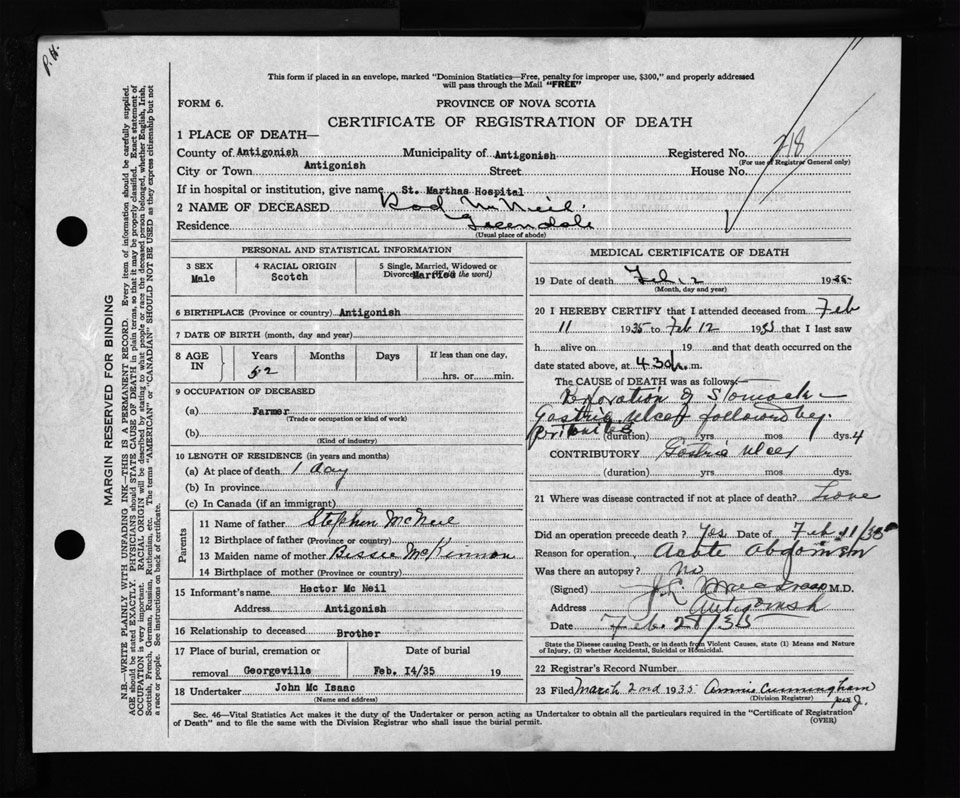 P.H.
This form if placed in an envelope, marked "Dominion Statistics—Free, penalty for improper use, $300," and properly addressed
will pass through the Mail "FREE"
FORM 6.
PROVINCE OF NOVA SCOTIA
CERTIFICATE OF REGISTRATION OF DEATH
1 PLACE OF DEATH—
County of Antigonish Municipality of Antigonish Registered No. 718
(For use of Registrar General only)
City or Town Antigonish Street House No.
If in hospital or institution, give name St. Marthas Hospital
2 NAME OF DECEASED Rod McNeil
Residence Greendale
(Usual place of abode)
PERSONAL AND STATISTICAL INFORMATION
3 SEX Male
4 RACIAL ORIGIN Scotch
5 Single, Married, Widowed or Divorced (Write the word) Married
6 BIRTHPLACE (Province or country) Antigonish
7 DATE OF BIRTH (month, day and year)
8 AGE IN Years 52 Months Days If less than one day, hrs. or min.
9 OCCUPATION OF DECEASED
(a) Farmer
(Trade or occupation or kind of work)
(b)
(Kind of industry)
10 LENGTH OF RESIDENCE (in years and months)
(a) At place of death 1 day
(b) In province
(c) In Canada (if an immigrant)
Parents
11 Name of father Stephen McNeil
12 Birthplace of father (Province or country)
13 Maiden name of mother Bessie McKinnon
14 Birthplace of mother (Province or country)
15 Informant's name Hector Mc Neil
Address Antigonish
16 Relationship to deceased Brother
17 Place of burial, cremation or removal Georgeville
Date of burial Feb. 14/35 19
18 Undertaker John Mc Isaac
(Name and address)
MEDICAL CERTIFICATE OF DEATH
19 Date of death Feb 12 1935
(Month, day and year)
20 I HEREBY CERTIFY that I attended deceased from Feb
11 1935 to Feb 12 1935 that I last saw
h alive on 19 and that death occurred on the
date stated above, at 4 30 m.
The CAUSE of DEATH was as follows:—
Perforation of Stomach —
Gastric ulcer followed by
peritonitis (duration) yrs mos dys. 4
CONTRIBUTORY Gastric ulcer
(duration) yrs. mos dys.
21 Where was disease contracted if not at place of death? Home
Did an operation precede death? Yes Date of Feb. 11/35
Reason for operation, Acute Abdomen
Was there an autopsy? No
(Signed) M.D.
Address Antigonish
Date Feb. 28/35
State the Disease causing Death, or in death from Violent Causes, state (1) Means and Nature
of Injury, (2) whether Accidental, Suicidal or Homicidal.
22 Registrar's Record Number
23 Filed March 2nd 1935 Annie Cunningham
(Division Registrar) per J.
Sec. 46—Vital Statistics Act makes it the duty of the Undertaker or person acting as Undertaker to obtain all the particulars required in the "Certificate of Registration
of Death" and to file the same with the Division Registrar who shall issue the burial permit.
(OVER)
MARGIN RESERVED FOR BINDING
N.B.—WRITE PLAINLY WITH UNFADING INK—THIS IS A PERMANENT RECORD. Every item of information should be carefully supplied.
AGE should be stated EXACTLY. PHYSICIANS should STATE CAUSE OF DEATH in plain terms, so that it may be properly classified. Exact statement of
OCCUPATION is very important. RACIAL ORIGIN will be described by stating to what people or race the deceased person belonged, whether English, Irish,
Scottish, French, German, Russian, Ruthenian, etc. The terms "AMERICAN" or "CANADIAN" SHOULD NOT BE USED as they express citizenship but not
a race or people. See instructions on back of certificate.